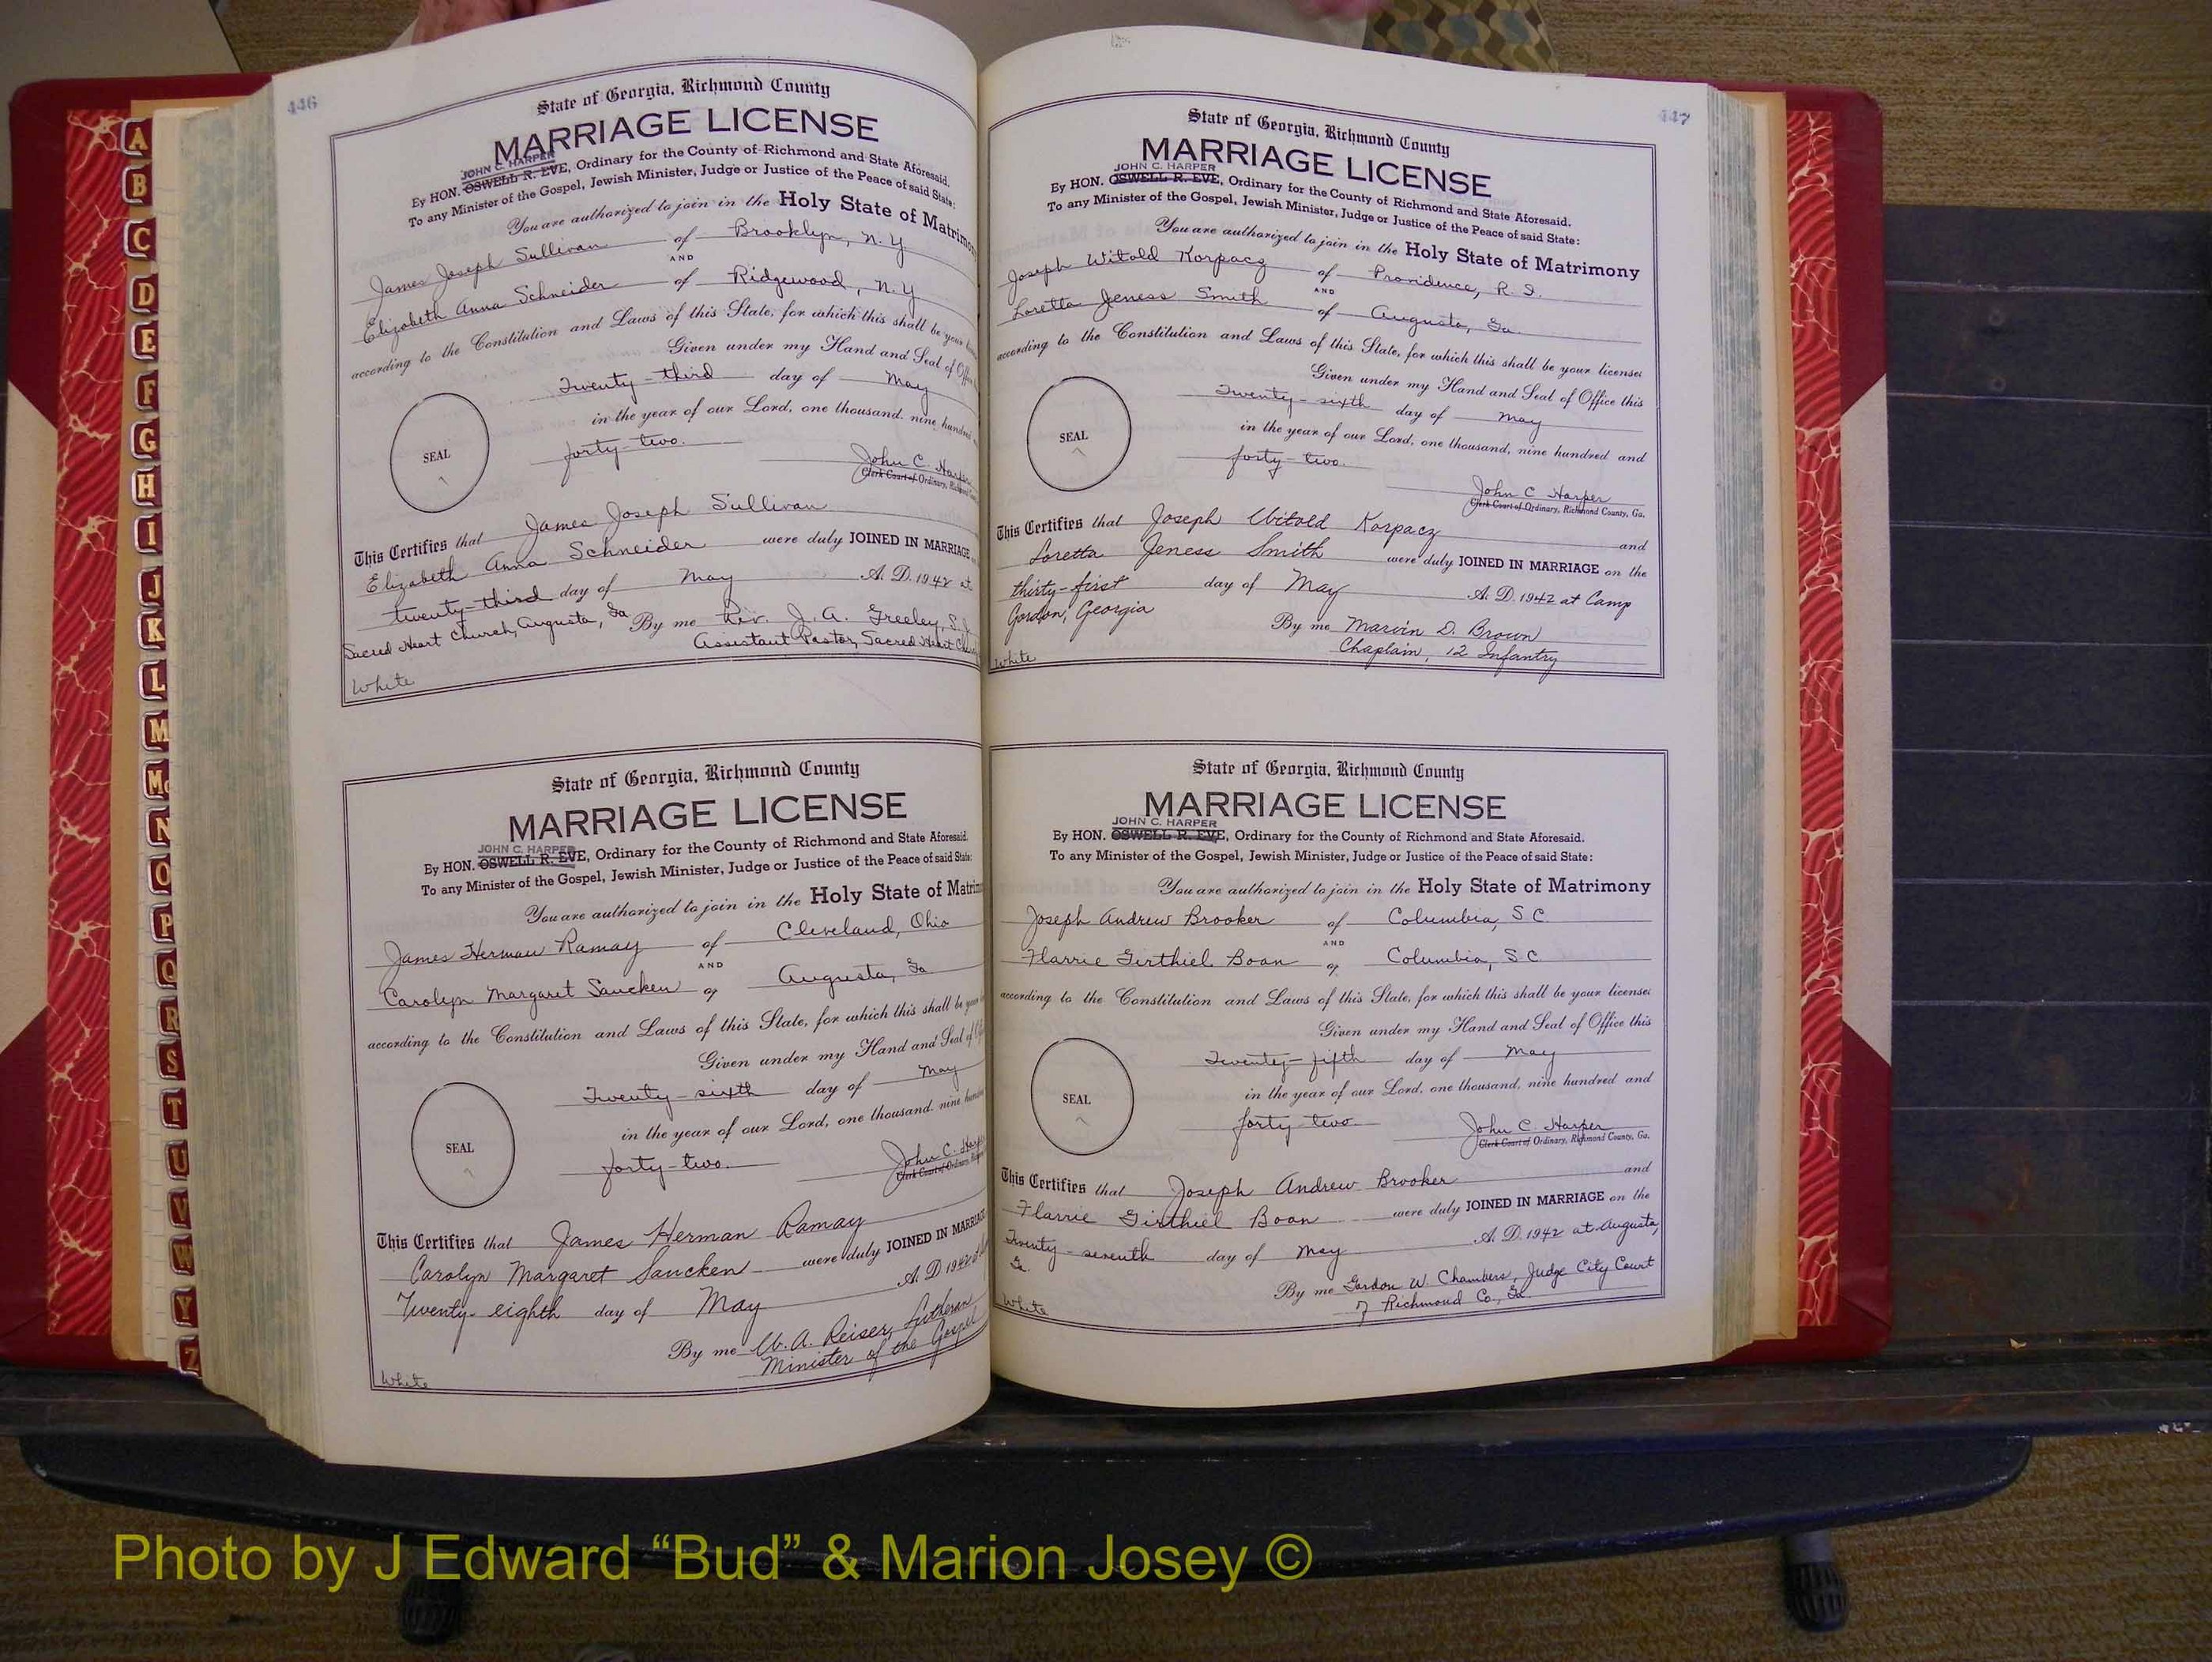 446
State of Georgia, Richmond County
MARRIAGE LICENSE
JOHN C. HARPER
By HON. OSWELL R. EVE, Ordinary for the County of Richmond and State Aforesaid.
To any Minister of the Gospel, Jewish Minister, Judge or Justice of the Peace of said State:
You are authorized to join in the Holy State of Matrimo
James Joseph Sullivan of Brooklyn, N.Y
AND
Elizabeth Anna Schneider of Ridgewood, N.Y
according to the Constitution and Laws of this State, for which this shall be your
Given under my Hand and Seal of
Twenty-third day of May
in the year of our Lord, one thousand, nine hundred
forty-two.
SEAL
John C. Harper
Clerk Court of Ordinary,
This Certifies that James Joseph Sullivan
Elizabeth Anna Schneider were duly JOINED IN MARRIAGE
twenty-third day of May A. D. 1942 at
Sacred Heart Church, Augusta, Ga By me Rev. J. A. Greeley, S.J.
Assistant Pastor, Sacred Heart
White
State of Georgia, Richmond County
MARRIAGE LICENSE
JOHN C. HARPER
By HON. OSWELL R. EVE, Ordinary for the County of Richmond and State Aforesaid.
To any Minister of the Gospel, Jewish Minister, Judge or Justice of the Peace of said State:
You are authorized to join in the Holy State of Matrim
James Herman Ramay of Cleveland, Ohio
AND
Carolyn Margaret Sancken of Augusta, Ga
according to the Constitution and Laws of this State, for which this shall be your
Given under my Hand and Seal of
Twenty-sixth day of May
in the year of our Lord, one thousand, nine
forty-two.
SEAL
John C. Harper
Clerk Court of Ordinary,
This Certifies that James Herman Ramay
Carolyn Margaret Sancken were duly JOINED IN MARRIAGE
Twenty eighth day of May A. D. 1942
By me W. A. Reiser, Lutheran
Minister of the Gospel
White
447
State of Georgia, Richmond County
MARRIAGE LICENSE
JOHN C. HARPER
By HON. OSWELL R. EVE, Ordinary for the County of Richmond and State Aforesaid.
To any Minister of the Gospel, Jewish Minister, Judge or Justice of the Peace of said State:
You are authorized to join in the Holy State of Matrimony
Joseph Witold Korpacz of Providence, R. I.
AND
Loretta Jeness Smith of Augusta, Ga.
according to the Constitution and Laws of this State, for which this shall be your license:
Given under my Hand and Seal of Office this
Twenty-sixth day of May
in the year of our Lord, one thousand, nine hundred and
forty-two.
SEAL
John C Harper
Clerk Court of Ordinary, Richmond County, Ga.
This Certifies that Joseph Witold Korpacz and
Loretta Jeness Smith were duly JOINED IN MARRIAGE on the
thirty-first day of May A. D. 1942 at Camp
Gordon, Georgia
By me Marvin D. Brown
Chaplain, 12 Infantry
White
State of Georgia, Richmond County
MARRIAGE LICENSE
JOHN C. HARPER
By HON. OSWELL R. EVE, Ordinary for the County of Richmond and State Aforesaid.
To any Minister of the Gospel, Jewish Minister, Judge or Justice of the Peace of said State:
You are authorized to join in the Holy State of Matrimony
Joseph Andrew Brooker of Columbia, S.C.
AND
Flarrie Girthiel Boan of Columbia, S.C.
according to the Constitution and Laws of this State, for which this shall be your license:
Given under my Hand and Seal of Office this
Twenty-fifth day of May
in the year of our Lord, one thousand, nine hundred and
forty-two.
SEAL
John C. Harper
Clerk Court of Ordinary, Richmond County, Ga.
This Certifies that Joseph Andrew Brooker and
Flarrie Girthiel Boan were duly JOINED IN MARRIAGE on the
Twenty-seventh day of May A. D. 1942 at Augusta,
Ga.
By me Gordon W. Chambers, Judge City Court
of Richmond Co., Ga.
White
A
B
C
D
E
F
G
H
I
J
K
L
M
Mc
N
O
P
Q
R
S
T
U
V
W
Y
Z
Photo by J Edward “Bud” & Marion Josey ©